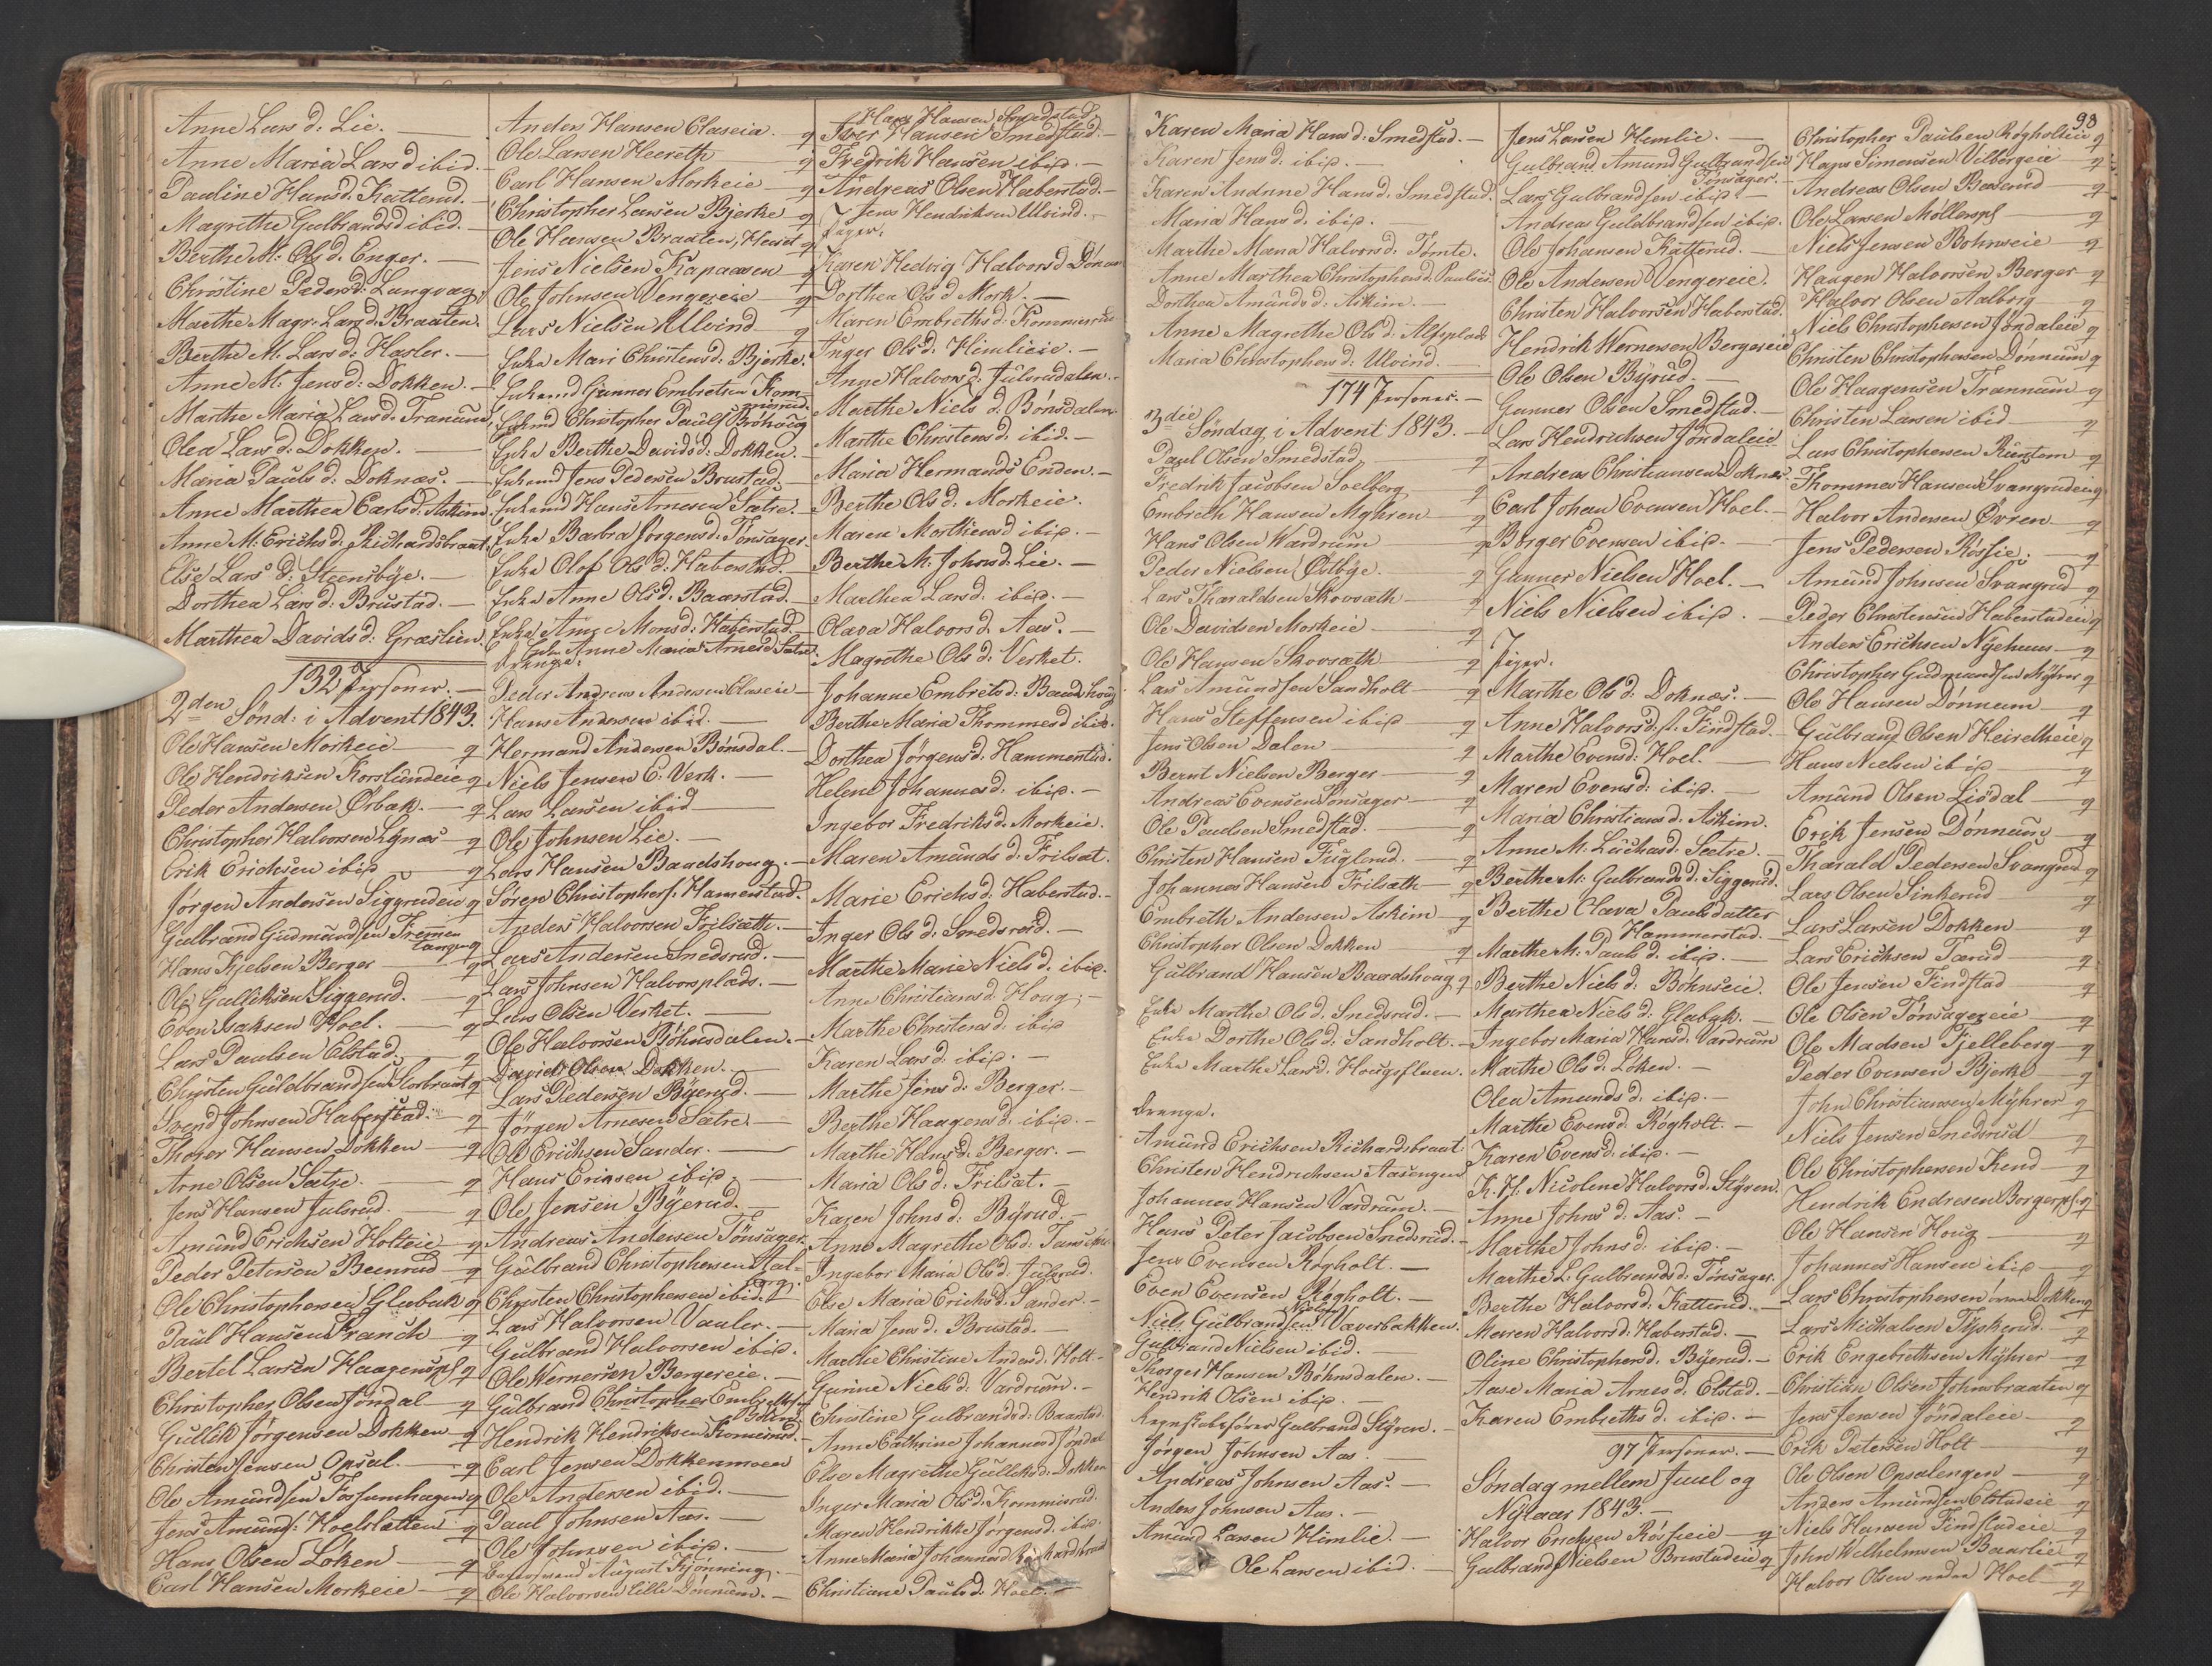 Anne Lars d. Lie.
Anne Maria Lars d ibid.
Pauline Hans d. Katterud.
Magrethe Gulbrands d ibid.
Berthe M. Ols d. Enger.
Christine Peders d. Langvag
Marthe Magr. Lars d. Braaten.
Berthe M. Lars d. Hasler.
Anne M. Jens d. Dokken.
Marthe Maria Lars d. Tranum
Olea Lars d. Dokken.
Maria Pauls d. Doknæs.
Anne Marthea Carls d. Askim
Anne M. Erichs d. Richardsbraat
Else Lars d. Steensbye.
Dorthea Lars d. Brustad.
Marthea Davids d. Græslien
132 Personer.
2den Sønd. i Advent 1843.
Ole Hansen Morkeie q
Ole Hendriksen Korslundeie q
Peder Andersen Ørbak. q
Christopher Halvorsen Lynæs q
Erik Erichsen ibid q
Jørgen Andersen Siggerudeie q
Gulbrand Gudmundsen Fremen
tangen q
Hans Kjelsen Berger q
Ole Gulliksen Siggerud. q
Even Isaksen Hoel. q
Lars Paulsen Elstad. q
Christen Guldbrandsen Storbraat q
Svend Johnsen Haberstad. q
Thorer Hansen Dokken q
Arne Olsen Sætre. q
Jens Hansen Julsrud. q
Amund Erichsen Holteie q
Peder Petersen Beenrud q
Ole Christophersen Glabak q
Paul Hansen Franch q
Bertel Larsen Haagenspl q
Christopher Olsen Jøndal q
Gullik Jørgensen Dokken q
Christen Jensen Opsal. q
Ole Amundsen Fossumhagen q
Jens Amunds. Hoelsletten q
Hans Olsen Løken q
Carl Hansen Morkeie q
Anders Hansen Claseie. q
Ole Larsen Heereth q
Carl Hansen Morkeie q
Christopher Larsen Bjerke q
Ole Hansen Braaten, Herset q
Jens Nielsen Kapaasen q
Ole Johnsen Vengereie q
Lars Nielsen Ulvind q
Enke Mari Christens d. Bjerke.
Enkemd Gunner Embretsen Kom-
misrud.
Enkemd Christopher Paulsen Brøhoug
Enke Berthe Davids d. Dokken.
Enkemd Jens Pedersen Brustad.
Enkemd Hans Arnesen Sætre.
Enke Barbra Jørgens d. Tønsager
Enke Olof Ols d. Haberstad.
Enke Anne Ols d. Baarstad.
Enke Anne Mons d. Haberstad
Enke Anne Maria Arnes d Sætre.
Drenge.
Peder Andreas Andersen Claseie
Hans Andersen ibid.
Hermand Andersen Bønsdal.
Niels Jensen E. Verk.
Lars Larsen ibid
Ole Johnsen Lie.
Lars Hansen Baadshoug.
Søren Christophers. Hamerstad.
Anders Halvorsen Frilsæth.
Lars Andersen Snedsrud.
Lars Johnsen Halvorsplads.
Lars Olsen Verket.
Ole Halvorsen Bøhnsdalen.
David Olsen Dokken.
Lars Pedersen Byerud.
Jørgen Arnesen Sætre.
Ole Erichsen Sander.
Hans Erichsen ibid.
Ole Jensen Byerud.
Andreas Andersen Tønsager.
Gulbrand Christophersen Aal-
borg.
Christen Christophersen ibid.
Lars Halvorsen Vauler.
Gulbrand Halvorsen ibid.
Ole Wernersen Bergereie.
Gulbrand Christopher Embrethsen
Hendrik Hendriksen Komisrud.
Carl Jensen Dokkenmoen
Ole Andersen ibid.
Paul Johnsen Aas.
Ole Johnsen ibid.
August Kjønning.
Ole Halvorsen Lille Dønnum.
Hans Hansen Smedstad
Iver Hansen Smedstad.
Fredrik Hansen ibid.
Andreas Olsen Haberstad.
Jens Hendriksen Ulvind.
Piger.
Karen Hedvig Halvors d Dønnum
Dorthea Ols d Mork.
Maren Embreths d. Kommisrud
Inger Ols d. Himlieie.
Anne Halvors d. Julsrudalen.
Marthe Niels d. Bønsdalen
Marthe Christens d. ibid.
Maria Hermands Enden.
Berthe Ols d. Morkeie.
Maren Morthens d ibid.
Berthe M. Johns d. Lie.
Marthea Lars d. ibid.
Olava Halvors d. Aas.
Magrethe Ols d. Verket.
Johanne Embrets d. Baadshoug
Berthe Maria Thommes d ibid.
Dorthea Jørgens d. Hammerstad.
Helene Johannes d. ibid.
Ingebor Fredriks d. Morkeie.
Maren Amunds d. Frilsæt.
Marie Erichs d. Haberstad.
Inger Ols d. Snedsrud.
Marthe Marie Niels d. ibid.
Anne Christians d. Houg.
Marthe Christens d. ibid
Karen Lars d. ibid.
Marthe Jens d. Berger.
Berthe Haagens d. ibid.
Marthe Hans d. Berger.
Maria Ols d. Frilsæt.
Karen Johns d. Byrud.
Anne Magrethe Ols d.
Ingebor Maria Ols d. Julsrud.
Else Maria Erichs d. Sander.
Maria Jens d. Brustad.
Marthe Christine Anders d. Holt.
Gurine Niels d. Vardrum.
Christine Gulbrands d. Baarstad
Anne Cathrine Johannes d Jøndal
Else Magrethe Gulliks d. Dokken
Inger Maria Ols d. Kommisrud.
Maren Hendrikke Jørgens d. ibid
Anne Maria Johannes d Richardsbraat
Christiane Pauls d. Hoel.
98
Karen Maria Hans d. Smedstad.
Karen Jens d. ibid.
Karen Andrine Hans d. Smedstad.
Maria Hans d. ibid.
Marthe Maria Halvors d. Tømte.
Anne Marthea Christophers d. Pauls
Dorthea Amunds d. Askim.
Anne Magrethe Ols d. Alfsplads
Maria Christophers d. Ulvind.
174 Personer.
3die Søndag i Advent 1843.
Paul Olsen Smedstad, q
Fredrik Jacobsen Soelberg q
Embreth Hansen Myhren q
Hans Olsen Wardrum q
Peder Nielsen Østbye. q
Lars Tharaldsen Skovsæth q
Ole Davidsen Morkeie q
Ole Hansen Skovsæth q
Lars Amundsen Sandholt q
Hans Steffensen ibid q
Jens Olsen Dalen q
Bernt Nielsen Berger q
Andreas Evensen Tønsager q
Ole Paulsen Smedstad. q
Christen Hansen Fuglerud. q
Johannes Hansen Frilsæth q
Embreth Andersen Askim q
Christopher Olsen Dokken q
Gulbrand Hansen Baadshoug q
Enke Marthe Ols d. Snedsrud.
Enke Dorthe Ols d. Sandholt.
Enke Marthe Lars d. Hougsfloen.
Drenge.
Amund Erichsen Richardsbraat
Christen Hendrichsen Aasengen
Johannes Hansen Vardrum.
Hans Peter Jacobsen Snedsrud.
Jens Evensen Røgholt.
Even Evensen Røgholt.
Niels Gulbrandsen Nielsen Væverbakken.
Gulbrand Nielsen ibid.
Thorger Hansen Bøhnsdalen.
Hendrik Olsen ibid.
Regnskabsfører Gulbrand Styren.
Jørgen Johnsen Aas.
Andreas Johnsen Aas.
Anders Johnsen Aas.
Amund Larsen Himlie.
Ole Larsen ibid.
Jens Larsen Hemlie.
Gulbrand Amund Gulbrandsen
Tønsager.
Lars Gulbrandsen ibid.
Andreas Guldbrandsen ibid.
Ole Johansen Katterud.
Ole Andersen Vengereie.
Christen Halvorsen Haberstad.
Hendrik Wernersen Bergereie
Ole Olsen Byrud.
Gunner Olsen Smedstad.
Lars Hendrichsen Jøndaleie
Andreas Christiansen Doknæs.
Carl Johan Evensen Hoel.
Børger Evensen ibid.
Gunner Nielsen Hoel.
Niels Nielsen ibid.
Piger.
Marthe Ols d. Doknæs.
Anne Halvors d. Findstad.
Marthe Evens d. Hoel.
Maren Evens d. ibid.
Maria Christians d. Askim.
Anne M. Luchas d. Sætre.
Berthe M. Gulbrands d. Siggerud.
Berthe Olava Pauls datter
Hammerstad.
Marthe M. Pauls d. ibid.
Berthe Niels d. Bohnseie.
Marthea Niels d. Glabak.
Ingebor Maria Hans d. Vardrum
Marthe Ols d. Løken.
Olea Amunds d. ibid.
Marthe Evens d. Røgholt.
Karen Evens d. ibid.
K. H. Nicoline Halvors d. Styren.
Anne Johns d. Aas.
Marthe Johns d. ibid.
Marthe L. Gulbrands d. Tønsager.
Berthe Halvors d. Katterud.
Maren Halvors d. Haberstad.
Oline Christophers d. Byerud.
Aase Maria Arnes d. Elstad.
Karen Embreths d. ibid.
97 Personer.
Søndag mellem Juul og
Nytaar 1843.
Halvor Erichsen Røssieie q
Gulbrand Nielsen Brustadeie q
Christopher Paulsen Røgholteie q
Hans Simensen Vilbergeie q
Andreas Olsen Baserud q
Ole Larsen Møllerspl q
Niels Jensen Bohnseie q
Haagen Halvorsen Berger q
Halvor Olsen Aalborg q
Niels Christophersen Jøndaleie q
Christen Christophersen Dønnum q
Ole Haagensen Trannum q
Christen Larsen ibid q
Lars Christophersen Rustom q
Thommes Hansen Svangrudeie q
Halvor Andersen Øvren q
Jens Pedersen Røssie. q
Amund Johnsen Svangrud q
Peder Christensen Haberstadeie q
Anders Erichsen Nyehuus q
Christopher Gudmundsen Myhrer q
Ole Hansen Dønnum q
Gulbrand Olsen Heiretheie q
Hans Nielsen ibid q
Amund Olsen Liødal q
Erik Jensen Dønnum q
Tharald Pedersen Svangrud q
Lars Olsen Sinkerud q
Lars Larsen Dokken q
Lars Erichsen Tærud q
Ole Jensen Findstad q
Ole Olsen Tønsagereie q
Ole Madsen Fjelleberg q
Peder Evensen Bjerke q
John Christiansen Myhrer q
Niels Jensen Snedsrud q
Ole Christophersen Rend q
Hendrik Endresen Borgerspl. q
Ole Hansen Houg q
Johannes Hansen ibid q
Lars Christophersen øvre Dokken q
Lars Michalsen Tyskerud. q
Erik Engebrethsen Myhrer q
Christian Olsen Johnsbraaten q
Jens Jensen Jøndaleie q
Erik Petersen Holt q
Ole Olsen Opsalengen q
Anders Amundsen Elstadeie q
Niels Hansen Findstadeie q
John Wilhelmsen Baarlie q
Halvor Olsen nedre Hoel q